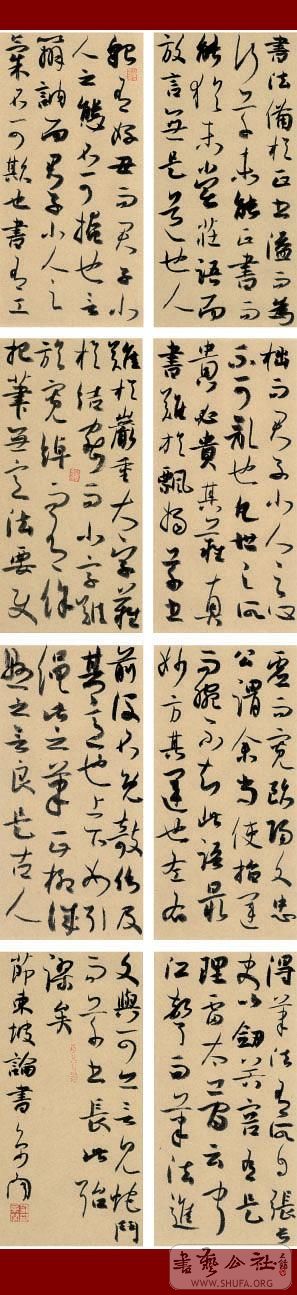 書法備於正書溢而為
行草未能正書而
能猶未嘗莊語而
放言無是道也人
貌有好丑而君子小
人之態不可掩也言
辯訥而君子小人之
氣不可欺也書有工
拙而君子小人之心
不可亂也凡世之所
貴必貴其難真
書難於飄揚草書
難於嚴重大字難
於結密而小字難
於寬綽而有餘
把筆無定法要使
虛而寬歐陽文忠
公謂余當使指運
而腕不知此語最
妙方其運也左右
前後不免欹側及
其定也上下如引
繩此之筆正柳誠
懸之言良是古人
得筆法有自張長
史以劍器容有是
理雷太簡云聞
江聲而筆法進
文與可亦言見蛇鬥
而草書長此殆
謬矣
節東坡論書
書藝公社
WWW.SHUFA.ORG